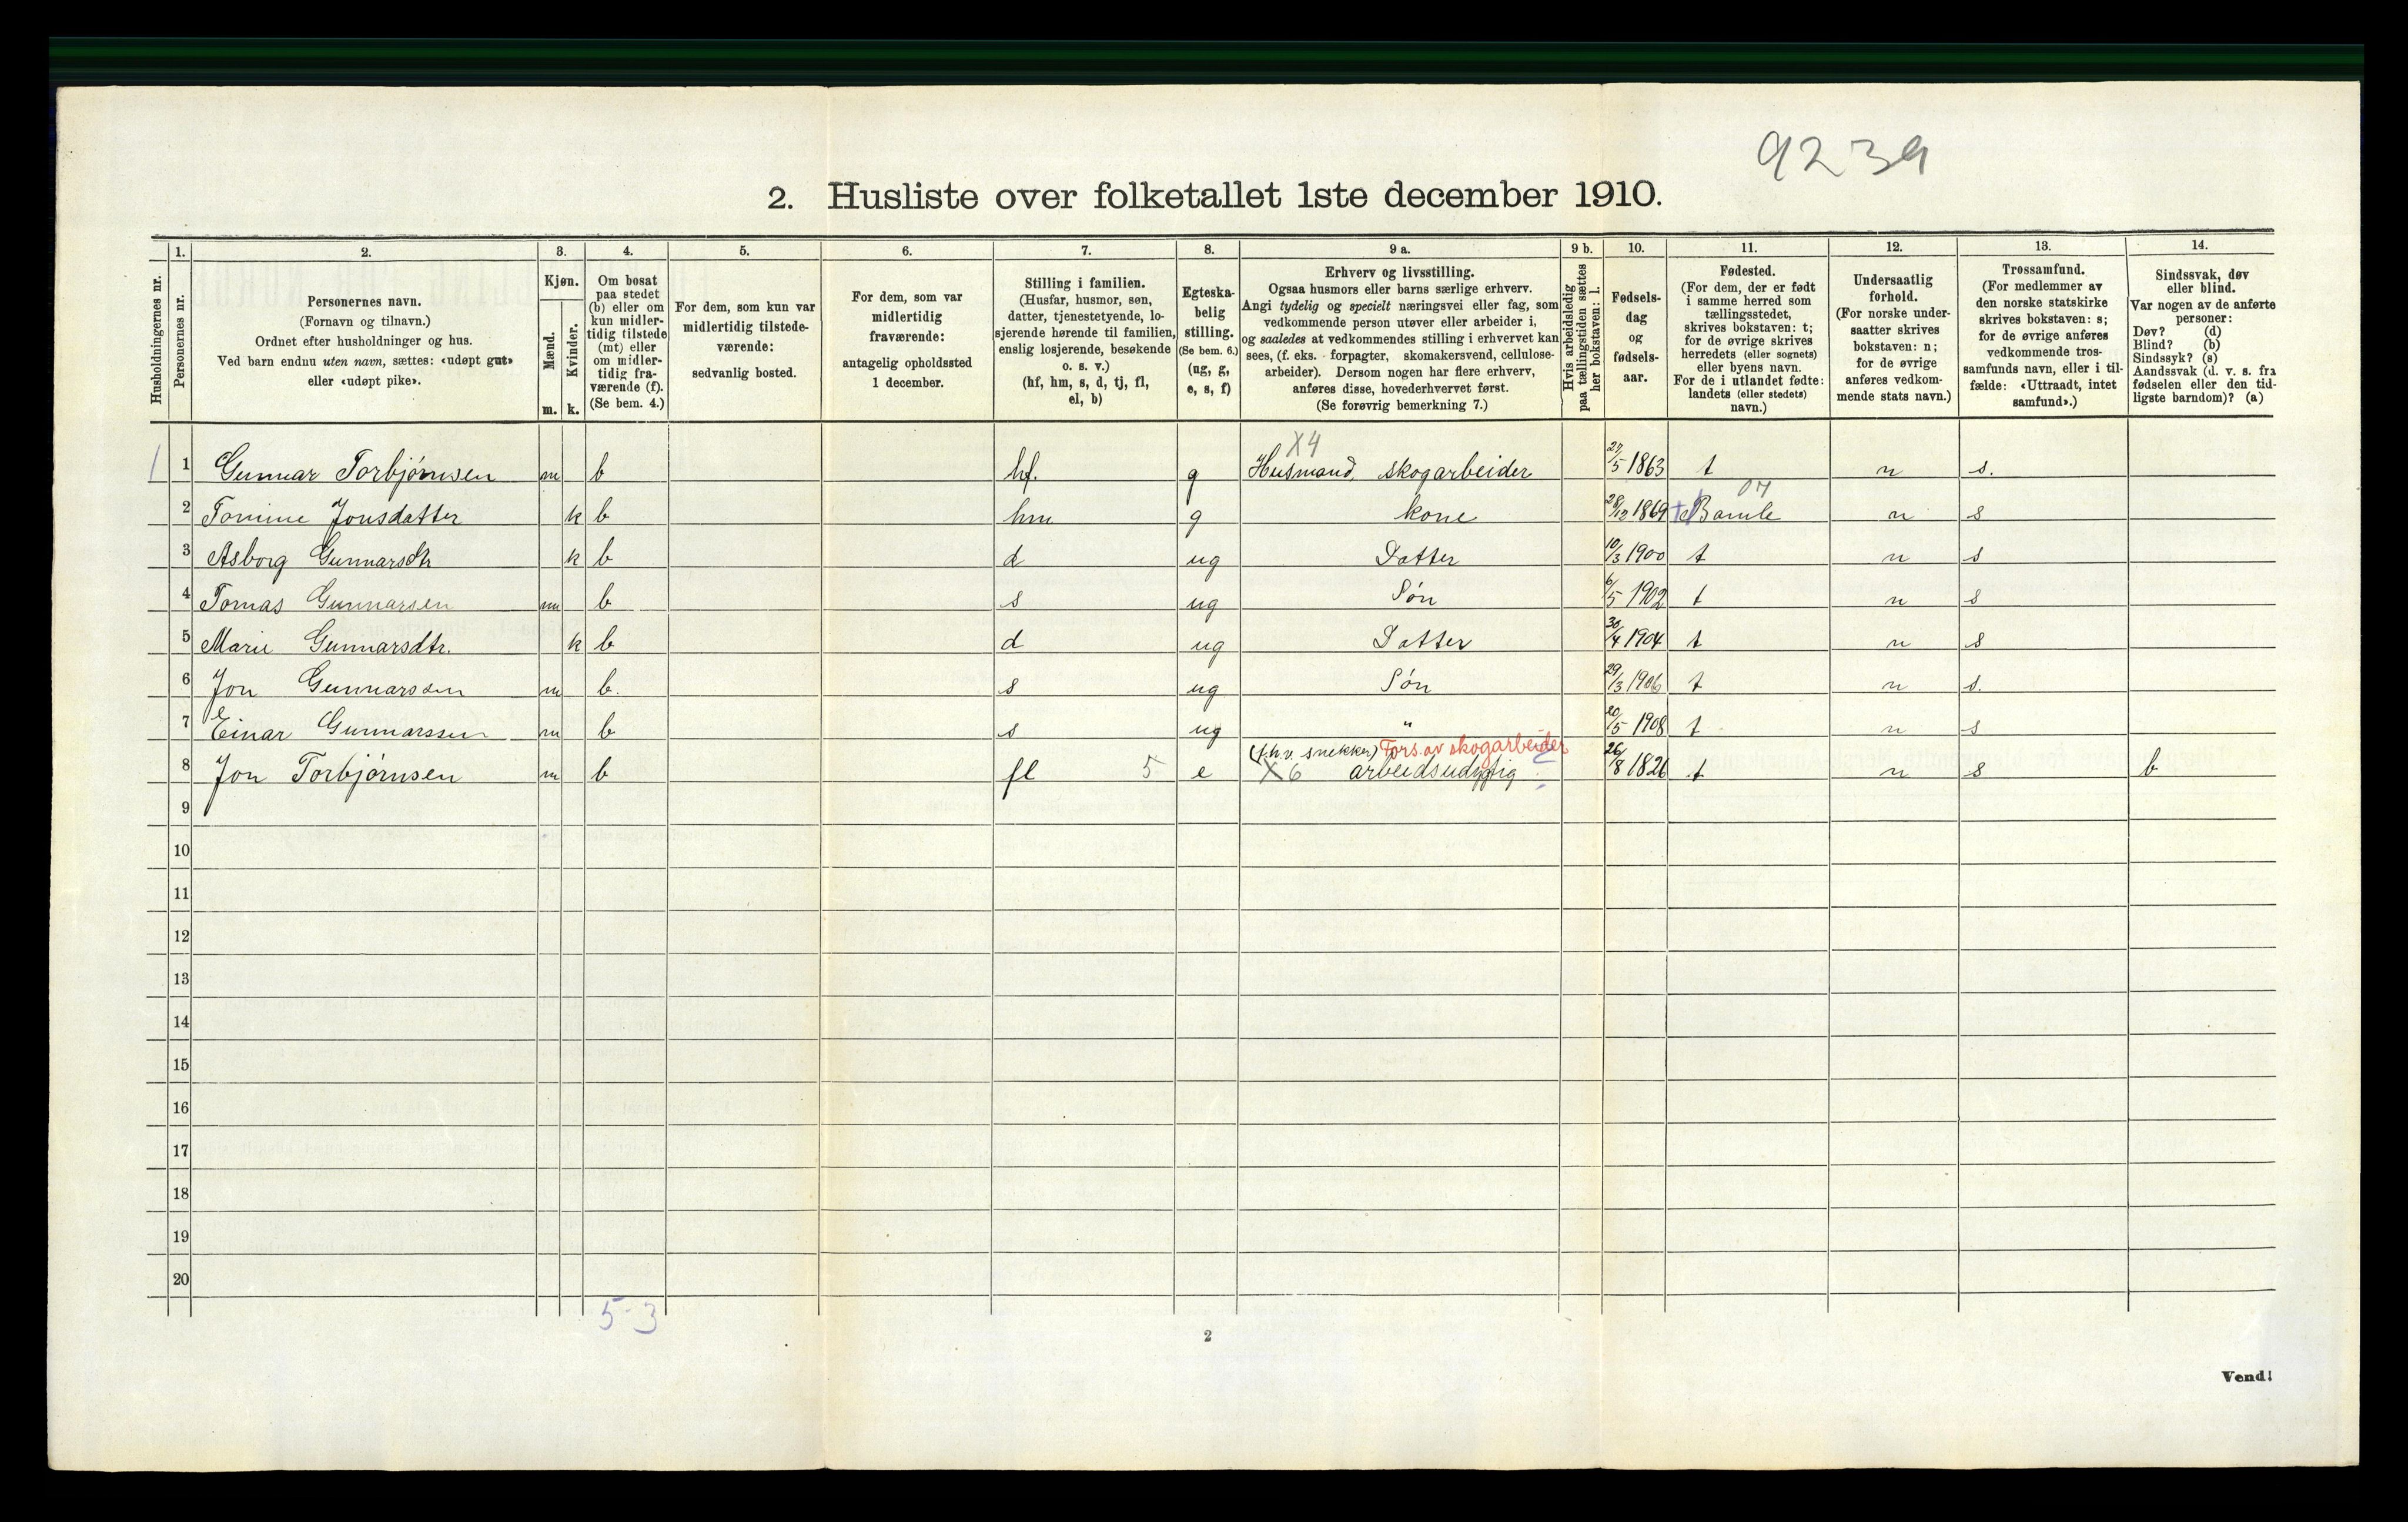 9239
2. Husliste over folketallet 1ste december 1910.
Husholdningernes nr.
1.
Personernes nr.
2.
Personernes navn.
(Fornavn og tilnavn.)
Ordnet efter husholdninger og hus.
Ved barn endnu uten navn, sættes: «udøpt gut»
eller «udøpt pike».
3.
Kjøn.
Mænd.
Kvinder.
m. k.
4.
Om bosat
paa stedet
(b) eller om
kun midler-
tidig tilstede
(mt) eller
om midler-
tidig fra-
værende (f).
(Se bem. 4.)
5.
For dem, som kun var
midlertidig tilstede-
værende:
sedvanlig bosted.
6.
For dem, som var
midlertidig
fraværende:
antagelig opholdssted
1 december.
7.
Stilling i familien.
(Husfar, husmor, søn,
datter, tjenestetyende, lo-
sjerende hørende til familien,
enslig losjerende, besøkende
o. s. v.)
(hf, hm, s, d, tj, fl,
el, b)
8.
Egteska-
belig
stilling.
(Se bem. 6.)
(ug, g,
e, s, f)
9 a.
Erhverv og livsstilling.
Ogsaa husmors eller barns særlige erhverv.
Angi tydelig og specielt næringsvei eller fag, som
vedkommende person utøver eller arbeider i,
og saaledes at vedkommendes stilling i erhvervet kan
sees, (f. eks. forpagter, skomakersvend, cellulose-
arbeider). Dersom nogen har flere erhverv,
anføres disse, hovederhvervet først.
(Se forøvrig bemerkning 7.)
9 b.
Hvis arbeidsledig
paa tællingstiden sættes
her bokstaven: l.
10.
Fødsels-
dag
og
fødsels-
aar.
11.
Fødested.
(For dem, der er født
i samme herred som
tællingsstedet,
skrives bokstaven: t;
for de øvrige skrives
herredets (eller sognets)
eller byens navn.
For de i utlandet fødte:
landets (eller stedets)
navn.)
12.
Undersaatlig
forhold.
(For norske under-
saatter skrives
bokstaven: n;
for de øvrige
anføres vedkom-
mende stats navn.)
13.
Trossamfund.
(For medlemmer av
den norske statskirke
skrives bokstaven: s;
for de øvrige anføres
vedkommende tros-
samfunds navn, eller i til-
fælde: «Uttraadt, intet
samfund».)
14.
Sindssvak, døv
eller blind.
Var nogen av de anførte
personer:
Døv? (d)
Blind? (b)
Sindssyk? (s)
Aandssvak (d. v. s. fra
fødselen eller den tid-
ligste barndom)? (a)
X4
1 1 Gunnar Torbjørnsen m b hf. g Husmand, skogarbeider 27/5 1863 t n s.
07
2 Tomine Jonsdatter k b hm g kone 28/12 1869 Bamle n s
3 Asborg Gunnarsdtr k b d ug Datter 10/3 1900 t n s
4 Tomas Gunnarsen m b s ug Søn 6/5 1902 t n s
5 Marie Gunnarsdtr. k b d ug Datter 30/4 1904 t n s
6 Jon Gunnarssen m b. s ug Søn 29/3 1906 t n s.
7 Einar Gunnarssen m b s ug " 20/5 1908 t n s
(f.h.v. snekker) Fors. av skogarbeider
8 Jon Torbjørnsen m b fl 5 e X6 arbeidsudygtig 26/8 1826 t n s b
9
10
11
12
13
14
15
16
17
18
19
20
5-3
2
Vend!